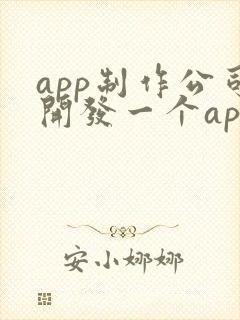 app制作公司
開發一个ap
安小娜娜